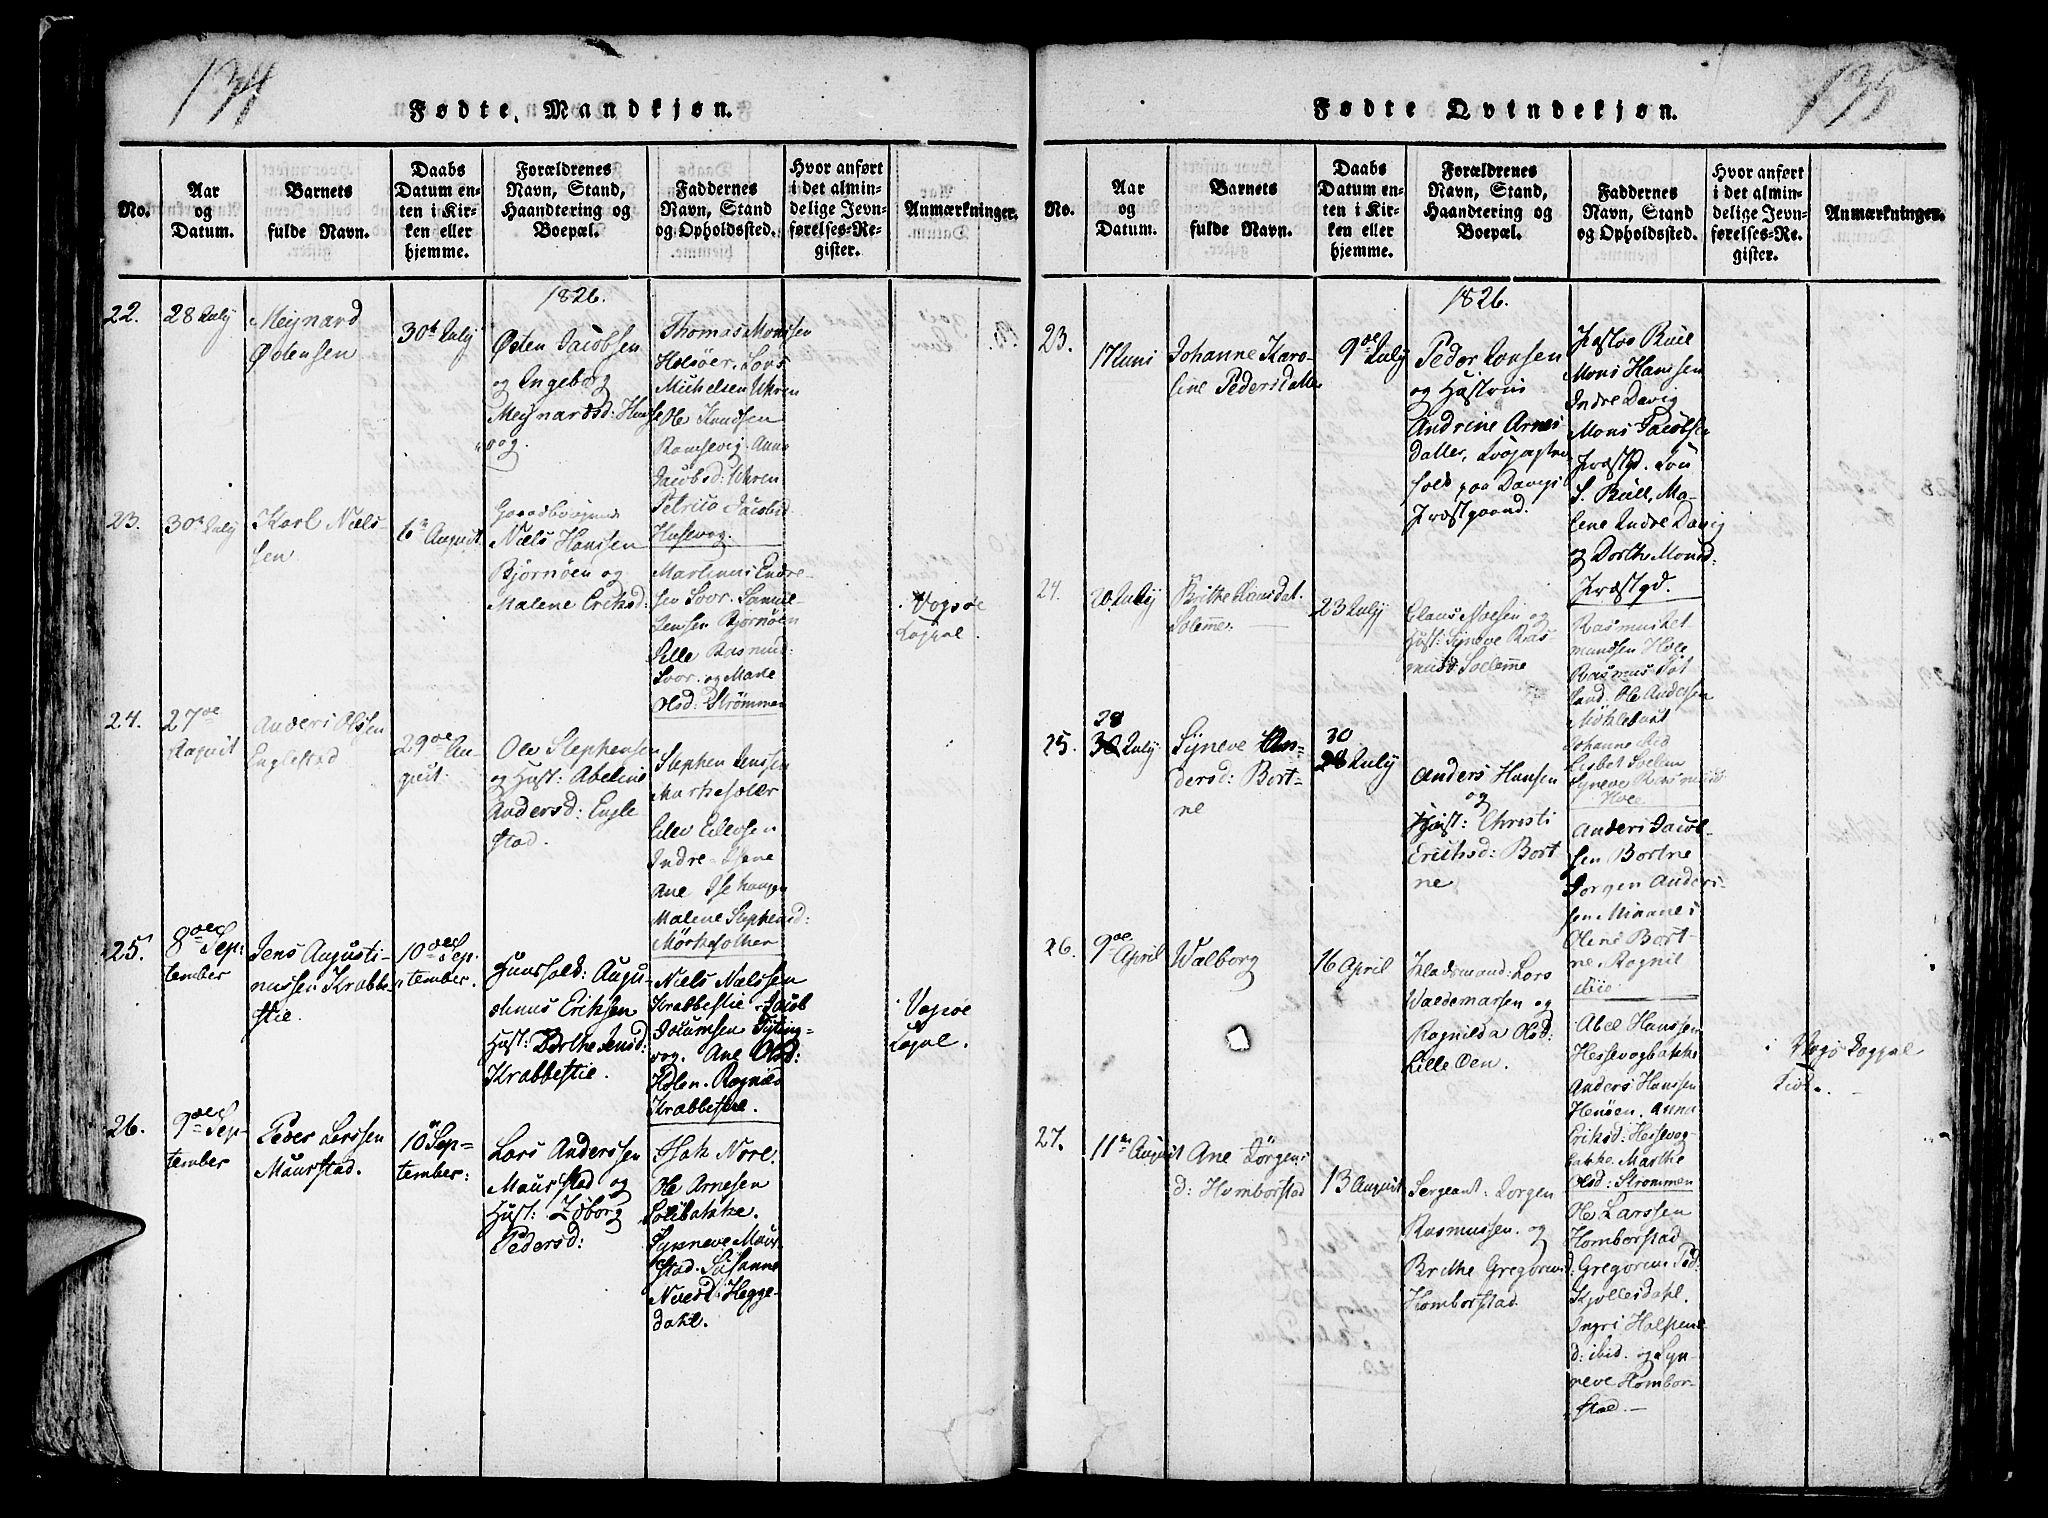 134
Fødte, Mandkjøn.
No.
Aar
og
Datum.
Barnets
fulde Navn.
Daabs
Datum en-
ten i Kir-
ken eller
hjemme.
Forældrenes
Navn, Stand,
Haandtering og
Boepæl.
Faddernes
Navn, Stand
og Opholdssted.
Hvor anført
i det almin-
delige Jevn-
førelses-Re-
gister.
Anmærkninger.
1826.
22.
28 July
Meynard
Østensen
30te July
Østen Jacobsen
og Ingeborg
Meynardsd: Huse
vog.
Thomas Monssen
Holsøer. Lars
Michelsen Uhren
Ole Knudsen
Ramsevig. Anna
Jacobsd: Uhren
Petrica Jacobsd
Husevog.
23.
30te July
Karl Niels-
sen
6te August.
Niels Hanssen
Bjornøen og
Malene Eriksd:
Martinus Endre-
sen Svor. Samuel
Jensen Bjornøen
Sille Rasmusd:
Svor. og Marte
Olsd: Strømmen
i Vogsøe
Kappel.
24.
27de
August
Anders Olssen
Englestad
29de Au-
gust.
Ole Stephensen
og Hust: Abeline
Andersd: Engle
stad.
Stephen Jenssen
Mørkefolær
Eilev Eilevsen
Indre-
Ane Isehaugen
Malene Stephensd:
Mørkefolken
25.
8de Sep:
tember
Jens Augusti-
nussen Krabbe-
stie.
10de Sep-
tember.
Huusfold: Augu-
stinus Eriksen
Hust: Dorthe Jensd:
Krabbestie.
Niels Nielssen
Krabbestie. Jacob
Joeumsen Tyting-
vog. Ane Olsd:
Holen. Rognild
Krabbestie.
i Vogsøe
Kappel.
26.
9de Sep-
tember
Peder Larssen
Maurstad.
10de Sep-
tember:
Lars Anderssen
Maurstad og
Hust: Idborg
Pedersd:
Isak Nore.
Ole Arnesen
Solibakke.
Synneve Maur-
stad. Susanne
Nilesd: Hegge-
dahl.
135
Fødte Qvindekjøn.
No.
Aar
og
Datum.
Barnets
fulde Navn.
Daabs
Datum en-
ten i Kir-
ken eller
hjemme.
Forældrenes
Navn, Stand,
Haandtering og
Boepæl.
Faddernes
Navn, Stand
og Opholdssted.
Hvor anført
i det almin-
delige Jevn-
førelses-Re-
gister.
Anmærkninger.
1826.
23.
17 Juni
Johanne Karo-
line Pedersdatter
9de July
Peder Jonsen
og Hustrue
Andrine Arnes
datter,
folk paa Davigs
Præstgaard.
Bull
Mons Hanssen
Indre Davig
Mons Jacobsen
Præstgd.
S. Bull, Ma-
lene Indre Davig
og Dorthe Monsd:
Præstgd.
24.
20 July
Brithe Klausdat.
Solemmer.
23 July
Claus Noesen og
Hust: Syneve Ras
musd: Soelemme
Rasmus Ret
mundsen Hoee
Rasmus
land. Ole Andersen
Møklebust
Johanne ibid
Lisbet Soelem
Syneve Rasmusd:
Hoee.
25.
28
30 July
Syneve An-
dersd: Bort-
ne
30
28 July
Anders Hansen
og
Hust: Christi
Erichsd: Bort
ne
Anders Jacob-
sen Bortne
Jorgen Anders-
sen Ninanes
Oline Bort-
ne. Rognil
ibid.
26.
9de April
Walborg
16 April
Pladsmand: Lars
Waldemarsen og
Ragnilda Olsd:
Lille Oen.
Abel Hanssen
Hessevogbakke
Anders Hanssen
Henøen. Anna
Eriksd: Hessevog-
bakke. Marthe
Olsd: Strommen
i Vogsø Cappel
Kirke.
27.
11te August
Ane Jørgens
d: Homborstad
13 August
Sergeant: Jorgen
Rasmussen. og
Brithe Gregorius
d: Homborstad
Ole Larssen
Homborstad
Gregorius Ped:
Skjollesdahl.
Ingri Halsteins
d: ibid. og Syn-
neve Hombor-
stad. —